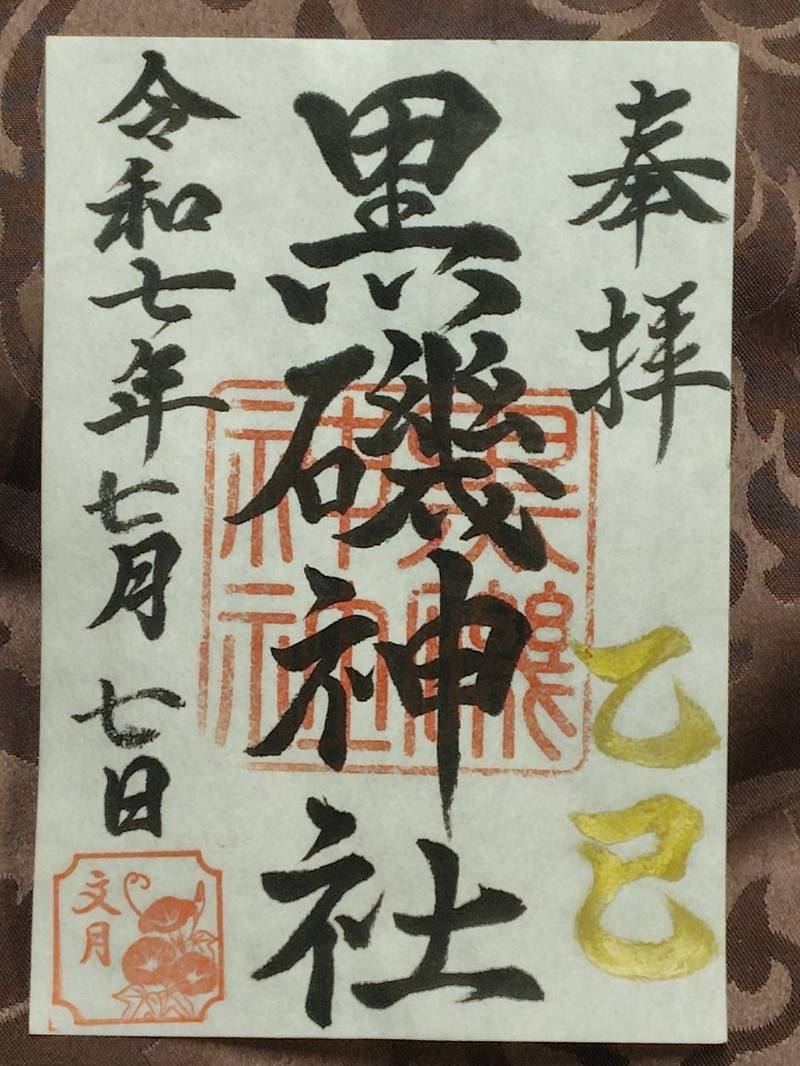 奉拝
乙巳
黒磯神社
黒磯
神社
令和七年七月七日
文月